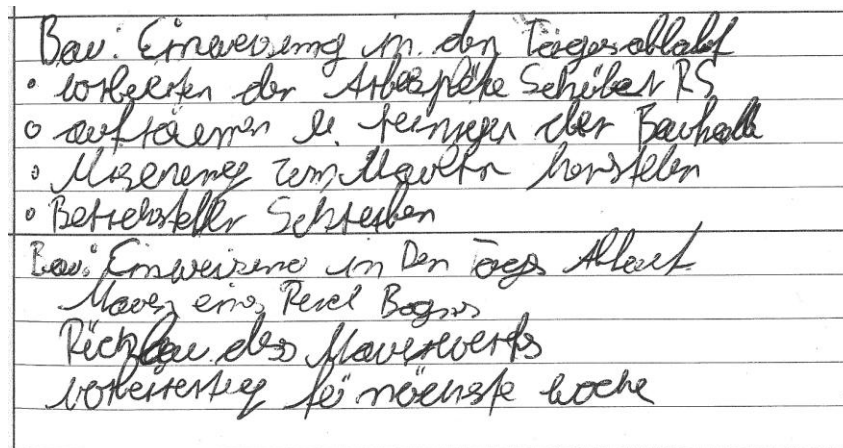 Bau: Einweisung in den Tagesablauf
• vorbereiten der Arbeitsplätze Schüler RS
• aufräumen u. reinigen der Bauhalle
• zum Mauern herstellen
• Schreiben
Bau: Einweisung in Den Tages Ablauf
Mauern eines Bogens
Rückbau des Mauerwerks
für nächste woche